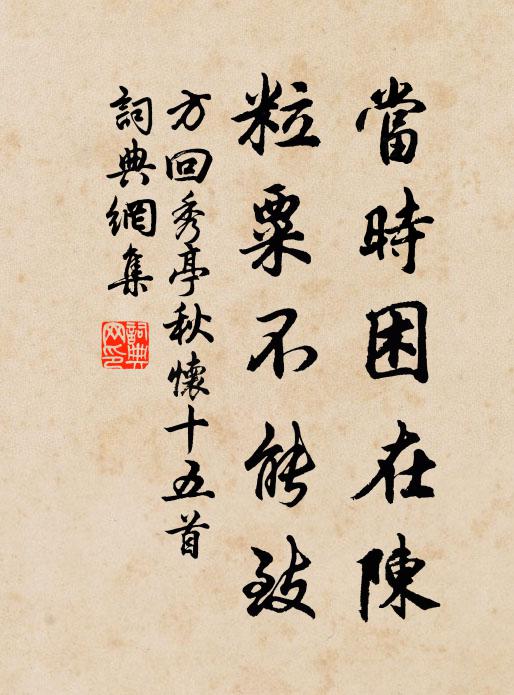 當時困在陳
粒粟不能致
方回秀亭秋懷十五首
詞典網集
詞典網印